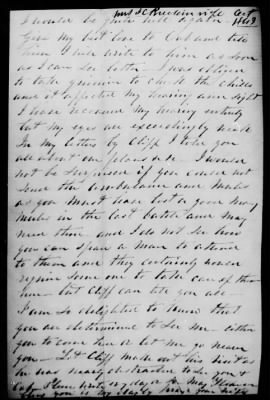 I would be quite well again
Give my best love to Col and tell
him I will write to him as soon
as I can see better I was obliged
to take quinine to check the chills
and it affected my hearing and sight
I have recovered my hearing entirely
but my eyes are exceedingly weak
In my letters by Cliff I told you
all about our plans &c I would
not be surprised if you could not
send the ambulance and mules
as you must have lost a good many
mules in the last battle and may
need them and I do not see how
you can spare a man to attend
to them and they certainly would
require some one to take care of them
here but Cliff can tell you all
I am so delighted to know that
you are determined to see me either
you to come here or let me go nearer
you Lt Cliff made out his visit as
he was nearly obstructed to see you &